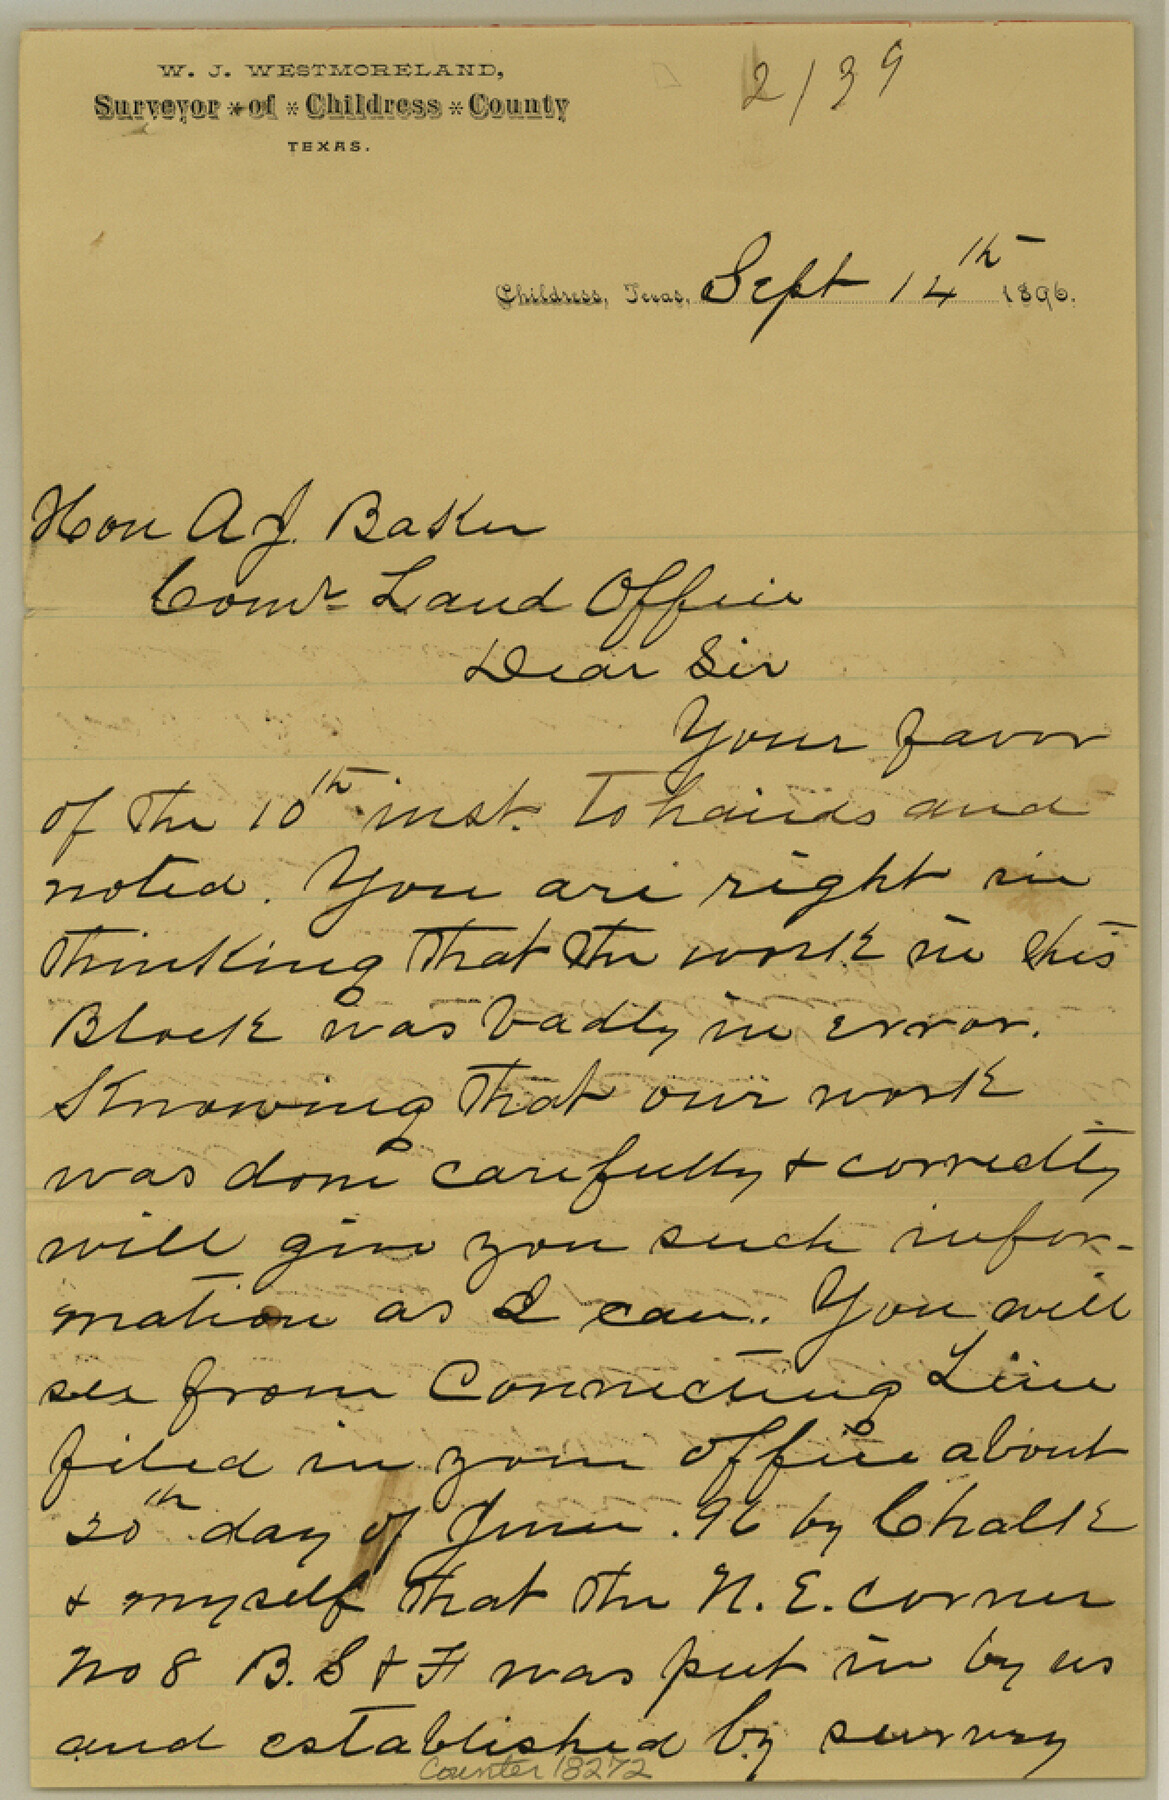 W. J. WESTMORELAND,
2139
Surveyor * of * Childress * County
TEXAS.
Childress, Texas, Sept 14th 1896.
Hon A.J. Baker
Comr Land Office
Dear Sir
Your favor
of the 10th inst. to hands and
noted. You are right in
thinking that the work in this
Block was badly in error.
Knowing that our work
was done carefully & correctly
will give you such infor-
mation as I can. You will
see from Connecting Line
filed in your office about
20th day of June .96 by Chalk
& myself that the N. E. corner
No 8 B. S & F was put in by us
and established by survey
Counter 18272